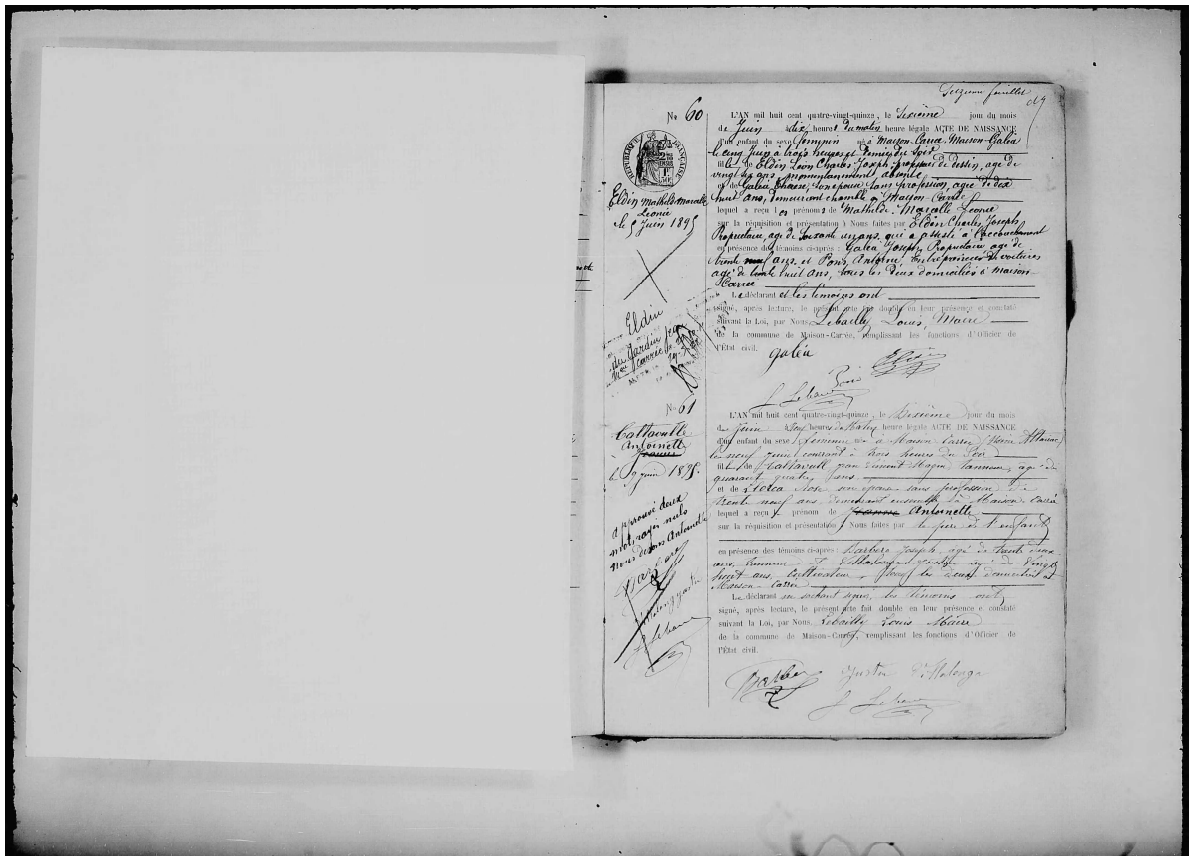 Seizième feuillet
No 60
L'AN mil huit cent quatre-vingt-quinze, le Sixième jour du mois
de Juin à dix heures du matin heure légale ACTE DE NAISSANCE
d'un enfant du sexe féminin né à Maison-Carrée, Maison-Galéa
le cinq Juin à trois heures et demie du soir
fille de Eldin Léon Charles Joseph professeur de dessin, agé de
vingt six ans momentanément absent
et de Galéa Thérèse, son épouse sans profession, agée de dix
huit ans, demeurant ensemble à Maison-Carrée
lequel a reçu les prénoms de Mathilde Marcelle Léonie
sur la réquisition et présentation à Nous faites par Eldin Charles Joseph
Propriétaire, agé de Soixante un ans, qui a assisté à l'accouchement
en présence des témoins ci-après : Galéa Joseph, Propriétaire agé de
trente neuf ans et Pons Antoine, Entrepreneur de voitures
agé de trente huit ans, tous les deux domiciliés à Maison-
Carrée
Le déclarant et les témoins ont
signé, après lecture, le présent acte fait double en leur présence et constaté
suivant la Loi, par Nous, Lebailly Louis, Maire
de la commune de Maison-Carrée, remplissant les fonctions d'Officier de
l'État civil.
Galéa Eldin
Pons
L Lebailly
RÉPUBLIQUE FRANÇAISE
Eldin Mathilde Marcelle
Léonie
le 5 Juin 1895
Eldin
du Jardin
Mon Carrée
No 61
L'AN mil huit cent quatre-vingt-quinze, le Dixième jour du mois
de Juin à heures du Matin heure légale ACTE DE NAISSANCE
d'un enfant du sexe féminin née à Maison Carrée
le neuf Juin courant à trois heures du Soir
fille de Caltavull Jean Vincent Magin Tanneur, agé de
quarante quatre ans
et de Llorca Rose son épouse sans profession de
trente neuf ans demeurant ensemble à Maison-Carrée
lequel a reçu le prénom de Jeanne Antoinette
sur la réquisition et présentation à Nous faites par le père de l'enfant
en présence des témoins ci-après : Barbera Joseph, agé de trente deux
ans, et agé de Vingt
huit ans, Cultivateur, tous les deux domiciliés à
Maison-Carrée
Le déclarant ne sachant signer, les témoins ont
signé, après lecture, le présent acte fait double en leur présence et constaté
suivant la Loi, par Nous, Lebailly Louis Maire
de la commune de Maison-Carrée, remplissant les fonctions d'Officier de
l'État civil.
Barbera Justin
L Lebailly
Caltavull
Antoinette
Jeanne
le 9 Juin 1895.
approuvé deux
mots rayés nuls
nous disons Antoinette
Barbera
L Lebailly